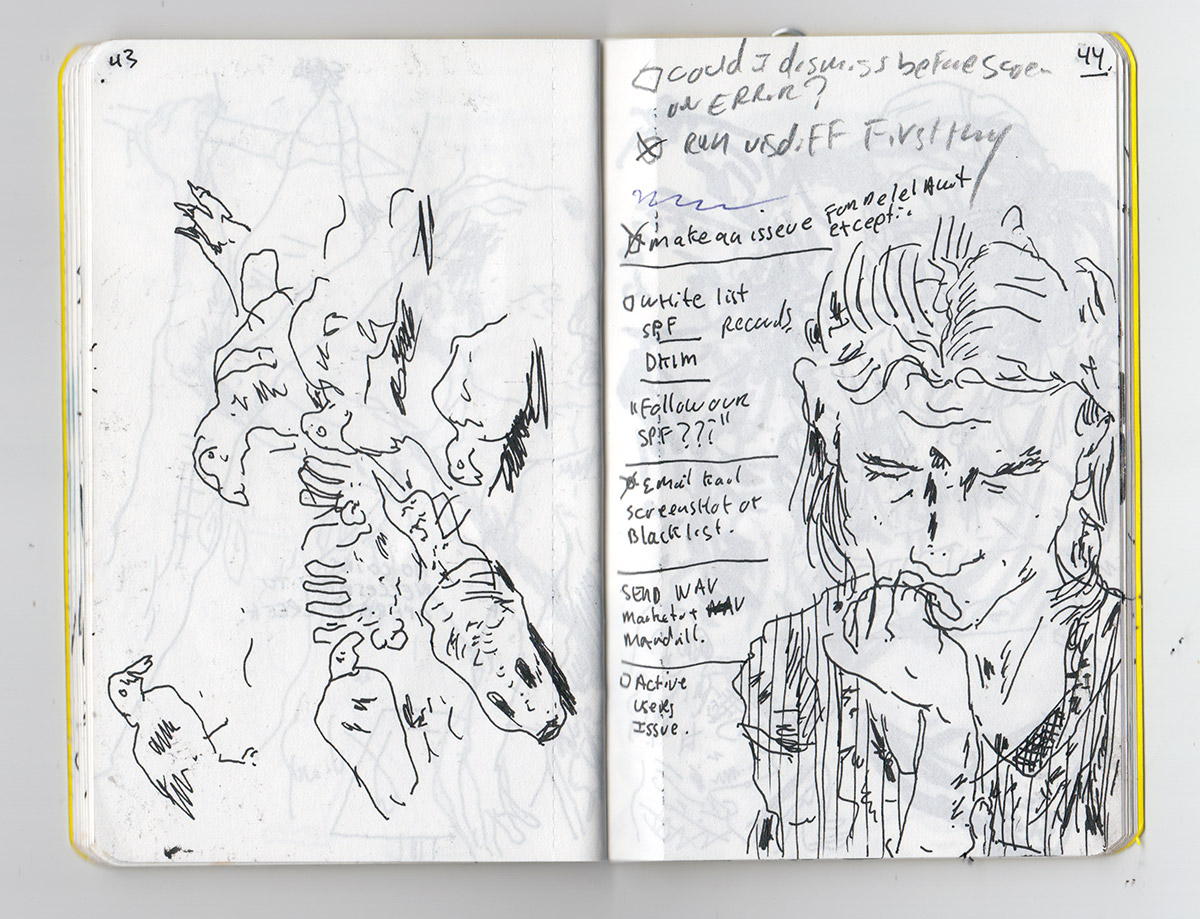 43
44.
Could I dismiss before screen
on ERROR?
Run visdiff First thing
make an isseue For Delel Acct
excepti.
White list
SPF Records
DKIM
"Follow our
SPF???"
Email Lead
screenshot of
Blacklist.
SEND WAV
Marketot WAV
Mandrill.
Active
users
Issue.